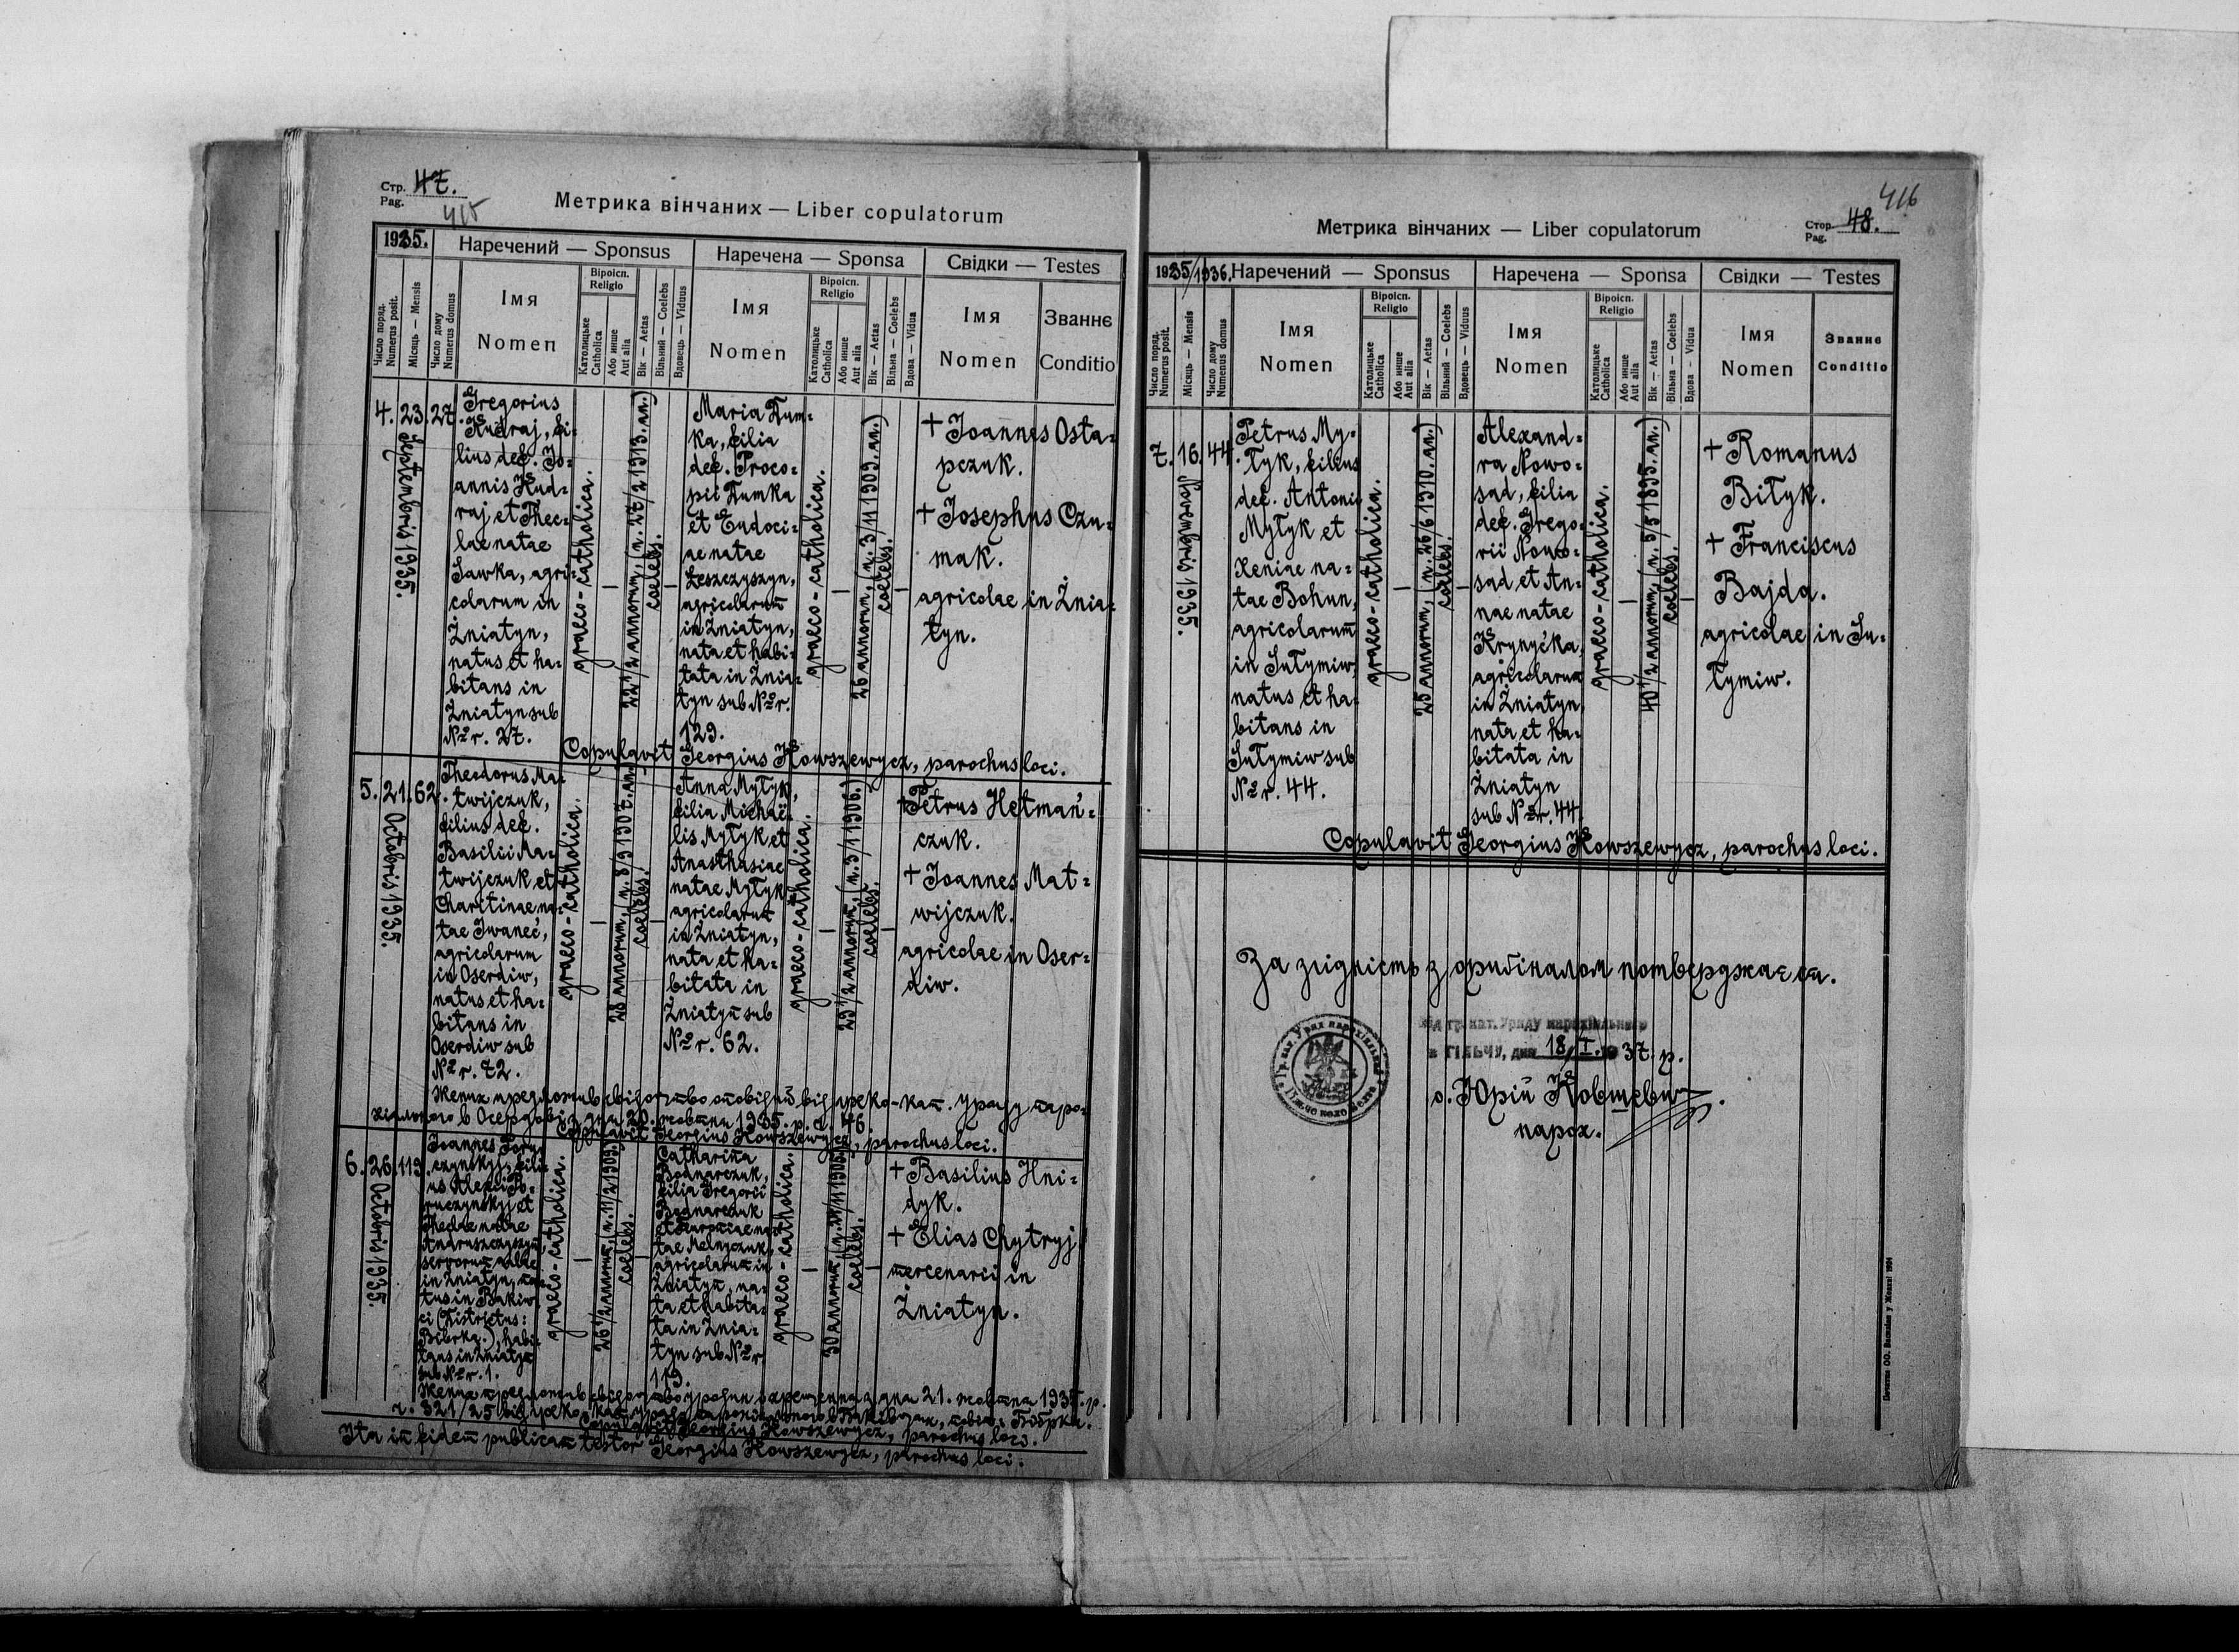 Стр. 47.
Pag.
415
Метрика вінчаних — Liber copulatorum
1935.
Наречений — Sponsus
Наречена — Sponsa
Свідки — Testes
Число поряд.
Numerus posit.
Місяць — Mensis
Число дому
Numerus domus
Імя
Nomen
Віроісп.
Religio
Католицьке
Catholica
Або инше
Aut alia
Вік — Aetas
Вільний — Coelebs
Вдовець — Viduus
Імя
Nomen
Віроісп.
Religio
Католицьке
Catholica
Або инше
Aut alia
Вік — Aetas
Вільна — Coelebs
Вдова — Vidua
Імя
Nomen
Званнє
Conditio
4.
23.
Septembris 1935.
27.
Gregorius
Kudraj, fi-
lius def. Jo-
annis Kud-
raj et Thec-
lae natae
Sawka, agri-
colarum in
Żniatyn,
natus et ha-
bitans in
Żniatyn sub
№ r. 27.
graeco-catholica.
—
22 1/2 annorum, (n. 27/2 1913. an.)
coelebs.
—
Maria Tum-
ka, filia
def. Proco-
pii Tumka
et Eudoci-
ae natae
Leszczyszyn,
agricolarum
in Żniatyn,
nata et habi-
tata in Żnia-
tyn sub № r.
129.
graeco-catholica.
—
26 annorum, (n. 3/11 1909. an.)
coelebs.
—
+ Joannes Osta-
pczuk.
+ Josephus Czu-
mak.
agricolae in Żnia-
tyn.
Copulavit Georgius Kowszewycz, parochus loci.
5.
21.
Octobris 1935.
62.
Theodorus Ma-
twijczuk,
filius def.
Basilii Ma-
twijczuk et
Charitinae na-
tae Iwaneć,
agricolarum
in Oserdiw,
natus et ha-
bitans in
Oserdiw sub
№ r. 72.
graeco-catholica.
—
28 annorum, (n. 8/9 1907. an.)
coelebs.
—
Anna Mytyk,
filia Michaë-
lis Mytyk et
Anasthasiae
natae Mytyk
agricolarum
in Żniatyn,
nata et ha-
bitata in
Żniatyn sub
№ r. 62.
graeco-catholica.
—
29 1/2 annorum, (n. 3/1 1906.)
coelebs.
—
+ Petrus Hetmań-
czuk.
+ Joannes Mat-
wijczuk.
agricolae in Oser-
diw.
Жених предложив свідоцтво оповідий від греко-кат. уряду паро-
хіяльного в Осердові з дня 20. жовтня 1935. р. ч. 46.
Copulavit Georgius Kowszewycz, parochus loci.
6.
26.
Octobris 1935.
119.
Joannes
czynskyj, fili-
us Alexii
et
Theclae natae
Andruszczyszyn,
in Żniatyn, na-
tus in Bakiw-
ci (Districtus:
Bibrka.), habi-
tans in Żniatyn
sub № r. 1.
graeco-catholica.
—
26 1/2 annorum, (n. 11/2 1909.)
coelebs.
—
Catharina
Bodnarczuk,
filia Gregorii
Bodnarczuk
et na-
tae Melnyczuk,
agricolarum in
Żniatyn, na-
ta et habita-
ta in Żnia-
tyn sub № r.
119.
graeco-catholica.
—
30 annorum,
coelebs.
—
+ Basilius Hni-
dyk.
+ Elias Chytryj.
mercenarii in
Żniatyn.
Жених предложив свідоцтво уродин і хрещення з дня 21. жовтня 1935. р.
ч. 321/25 від греко-кат. уряду парохіяльного в Баківцях, повіт: Бібрка.
Copulavit Georgius Kowszewycz, parochus loci.
Ita in fidem publicam testor Georgius Kowszewycz, parochus loci.
416
Метрика вінчаних — Liber copulatorum
Стор. 48.
Pag.
1935/1936.
Наречений — Sponsus
Наречена — Sponsa
Свідки — Testes
Число поряд.
Numerus posit.
Місяць — Mensis
Число дому
Numerus domus
Імя
Nomen
Віроісп.
Religio
Католицьке
Catholica
Або инше
Aut alia
Вік — Aetas
Вільний — Coelebs
Вдовець — Viduus
Імя
Nomen
Віроісп.
Religio
Католицьке
Catholica
Або инше
Aut alia
Вік — Aetas
Вільна — Coelebs
Вдова — Vidua
Імя
Nomen
Званнє
Conditio
7.
16.
Novembris 1935.
44.
Petrus My-
tyk, filius
def. Antonii
Mytyk et
Xeniae na-
tae Bohun,
agricolarum
in Sutymiw,
natus et ha-
bitans in
Sutymiw sub
№ r. 44.
graeco-catholica.
—
25 annorum, (n. 26/6 1910. an.)
coelebs.
—
Alexand-
ra Nowo-
sad, filia
def. Grego-
rii Nowo-
sad et An-
nae natae
Krynyćka,
agricolarum
in Żniatyn,
nata et ha-
bitata in
Żniatyn
sub № r. 44.
graeco-catholica.
—
40 1/2 annorum, (n. 5/5 1895. an.)
coelebs.
—
+ Romanus
Bityk.
+ Franciscus
Bajda.
agricolae in Su-
tymiw.
Copulavit Georgius Kowszewycz, parochus loci.
За згідність з оригіналом потверджаєся.
Від гр. кат. Уряду парохіяльного
в ГІЛЬЧУ, дня 18/I. 1937. р.
о. Юрій Ковшевич.
парох.
Печатня ОО. Василіян у Жовкві 1934